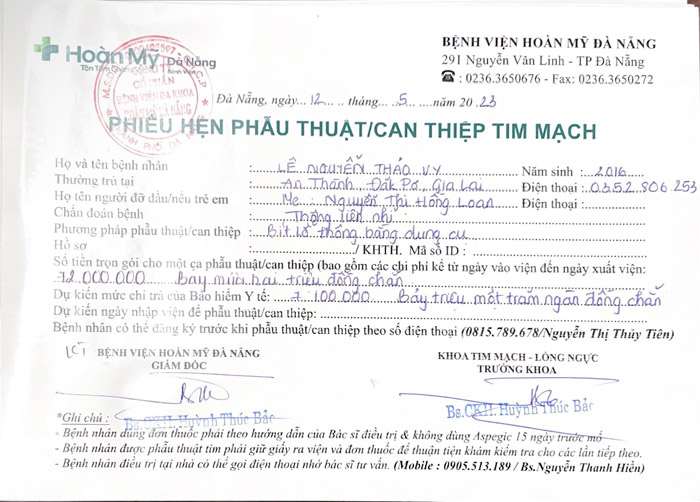 Hoàn Mỹ Đà Nẵng
Bệnh viện
BỆNH VIỆN HOÀN MỸ ĐÀ NẴNG
291 Nguyễn Văn Linh - TP Đà Nẵng
☎ : 0236.3650676 - Fax: 0236.3650272
BỆNH VIỆN ĐA KHOA
Đà Nẵng, ngày... 12 ... tháng... 5 ..... năm 20 23
PHIẾU HẸN PHẪU THUẬT/CAN THIỆP TIM MẠCH
Họ và tên bệnh nhân : LÊ NGUYỄN THẢO VY Năm sinh : 2016
Thường trú tại : An Thành Đăk Pơ, Gia Lai Điện thoại : 0352.806.253
Họ tên người đỡ đầu/nếu trẻ em : Mẹ : Nguyễn Thị Hồng Loan Điện thoại :
Chẩn đoán bệnh : Thông liên nhĩ
Phương pháp phẫu thuật/can thiệp : Bít lỗ thông bằng dụng cụ
Hồ sơ : / KHTH. Mã số ID :
Số tiền trọn gói cho một ca phẫu thuật/can thiệp (bao gồm các chi phí kể từ ngày vào viện đến ngày xuất viện:
72.000.000 Bảy mươi hai triệu đồng chẵn
Dự kiến mức chi trả của Bảo hiểm Y tế: 7.100.000 Bảy triệu một trăm ngàn đồng chẵn
Dự kiến ngày nhập viện để phẫu thuật/can thiệp:
Bệnh nhân có thể đăng ký trước khi phẫu thuật/can thiệp theo số điện thoại (0815.789.678/Nguyễn Thị Thủy Tiên)
KT BỆNH VIỆN HOÀN MỸ ĐÀ NẴNG
GIÁM ĐỐC
KHOA TIM MẠCH - LỒNG NGỰC
TRƯỞNG KHOA
Bs.CKII. Huỳnh Thúc Bảc
Bs.CKII. Huỳnh Thúc Bảc
*Ghi chú :
- Bệnh nhân dùng đơn thuốc phải theo hướng dẫn của Bác sĩ điều trị & không dùng Aspegic 15 ngày trước mổ
- Bệnh nhân được phẫu thuật tim phải giữ giấy ra viện và đơn thuốc để thuận tiện khám kiểm tra cho các lần tiếp theo.
- Bệnh nhân điều trị tại nhà có thể gọi điện thoại nhờ bác sĩ tư vấn. (Mobile : 0905.513.189 / Bs.Nguyễn Thanh Hiền)